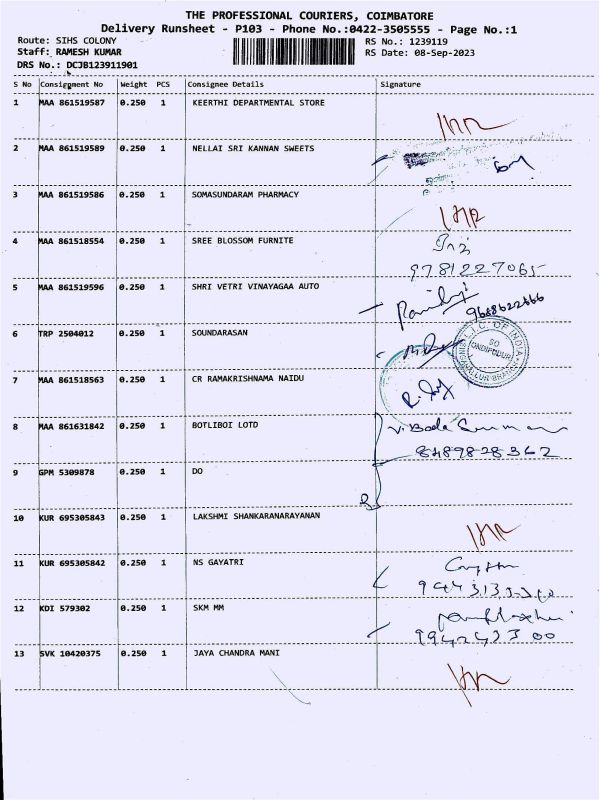 THE PROFESSIONAL COURIERS, COIMBATORE
Delivery Runsheet - P103 - Phone No.:0422-3505555 - Page No.:1
Route: SIHS COLONY RS No.: 1239119
Staff: RAMESH KUMAR RS Date: 08-Sep-2023
DRS No.: DCJB123911901
S No Consignment No Weight PCS Consignee Details Signature
1 MAA 861519587 0.250 1 KEERTHI DEPARTMENTAL STORE
2 MAA 861519589 0.250 1 NELLAI SRI KANNAN SWEETS
3 MAA 861519586 0.250 1 SOMASUNDARAM PHARMACY
4 MAA 861518554 0.250 1 SREE BLOSSOM FURNITE
9781227065
5 MAA 861519596 0.250 1 SHRI VETRI VINAYAGAA AUTO
9688622666
6 TRP 2504012 0.250 1 SOUNDARASAN
L.I.C. OF INDIA
SO
ONDIPUDUR
7 MAA 861518563 0.250 1 CR RAMAKRISHNAMA NAIDU
8 MAA 861631842 0.250 1 BOTLIBOI LOTD
8489828362
9 GPM 5309878 0.250 1 DO
10 KUR 695305843 0.250 1 LAKSHMI SHANKARANARAYANAN
11 KUR 695305842 0.250 1 NS GAYATRI
12 KDI 579302 0.250 1 SKM MM
9942433300
13 SVK 10420375 0.250 1 JAYA CHANDRA MANI